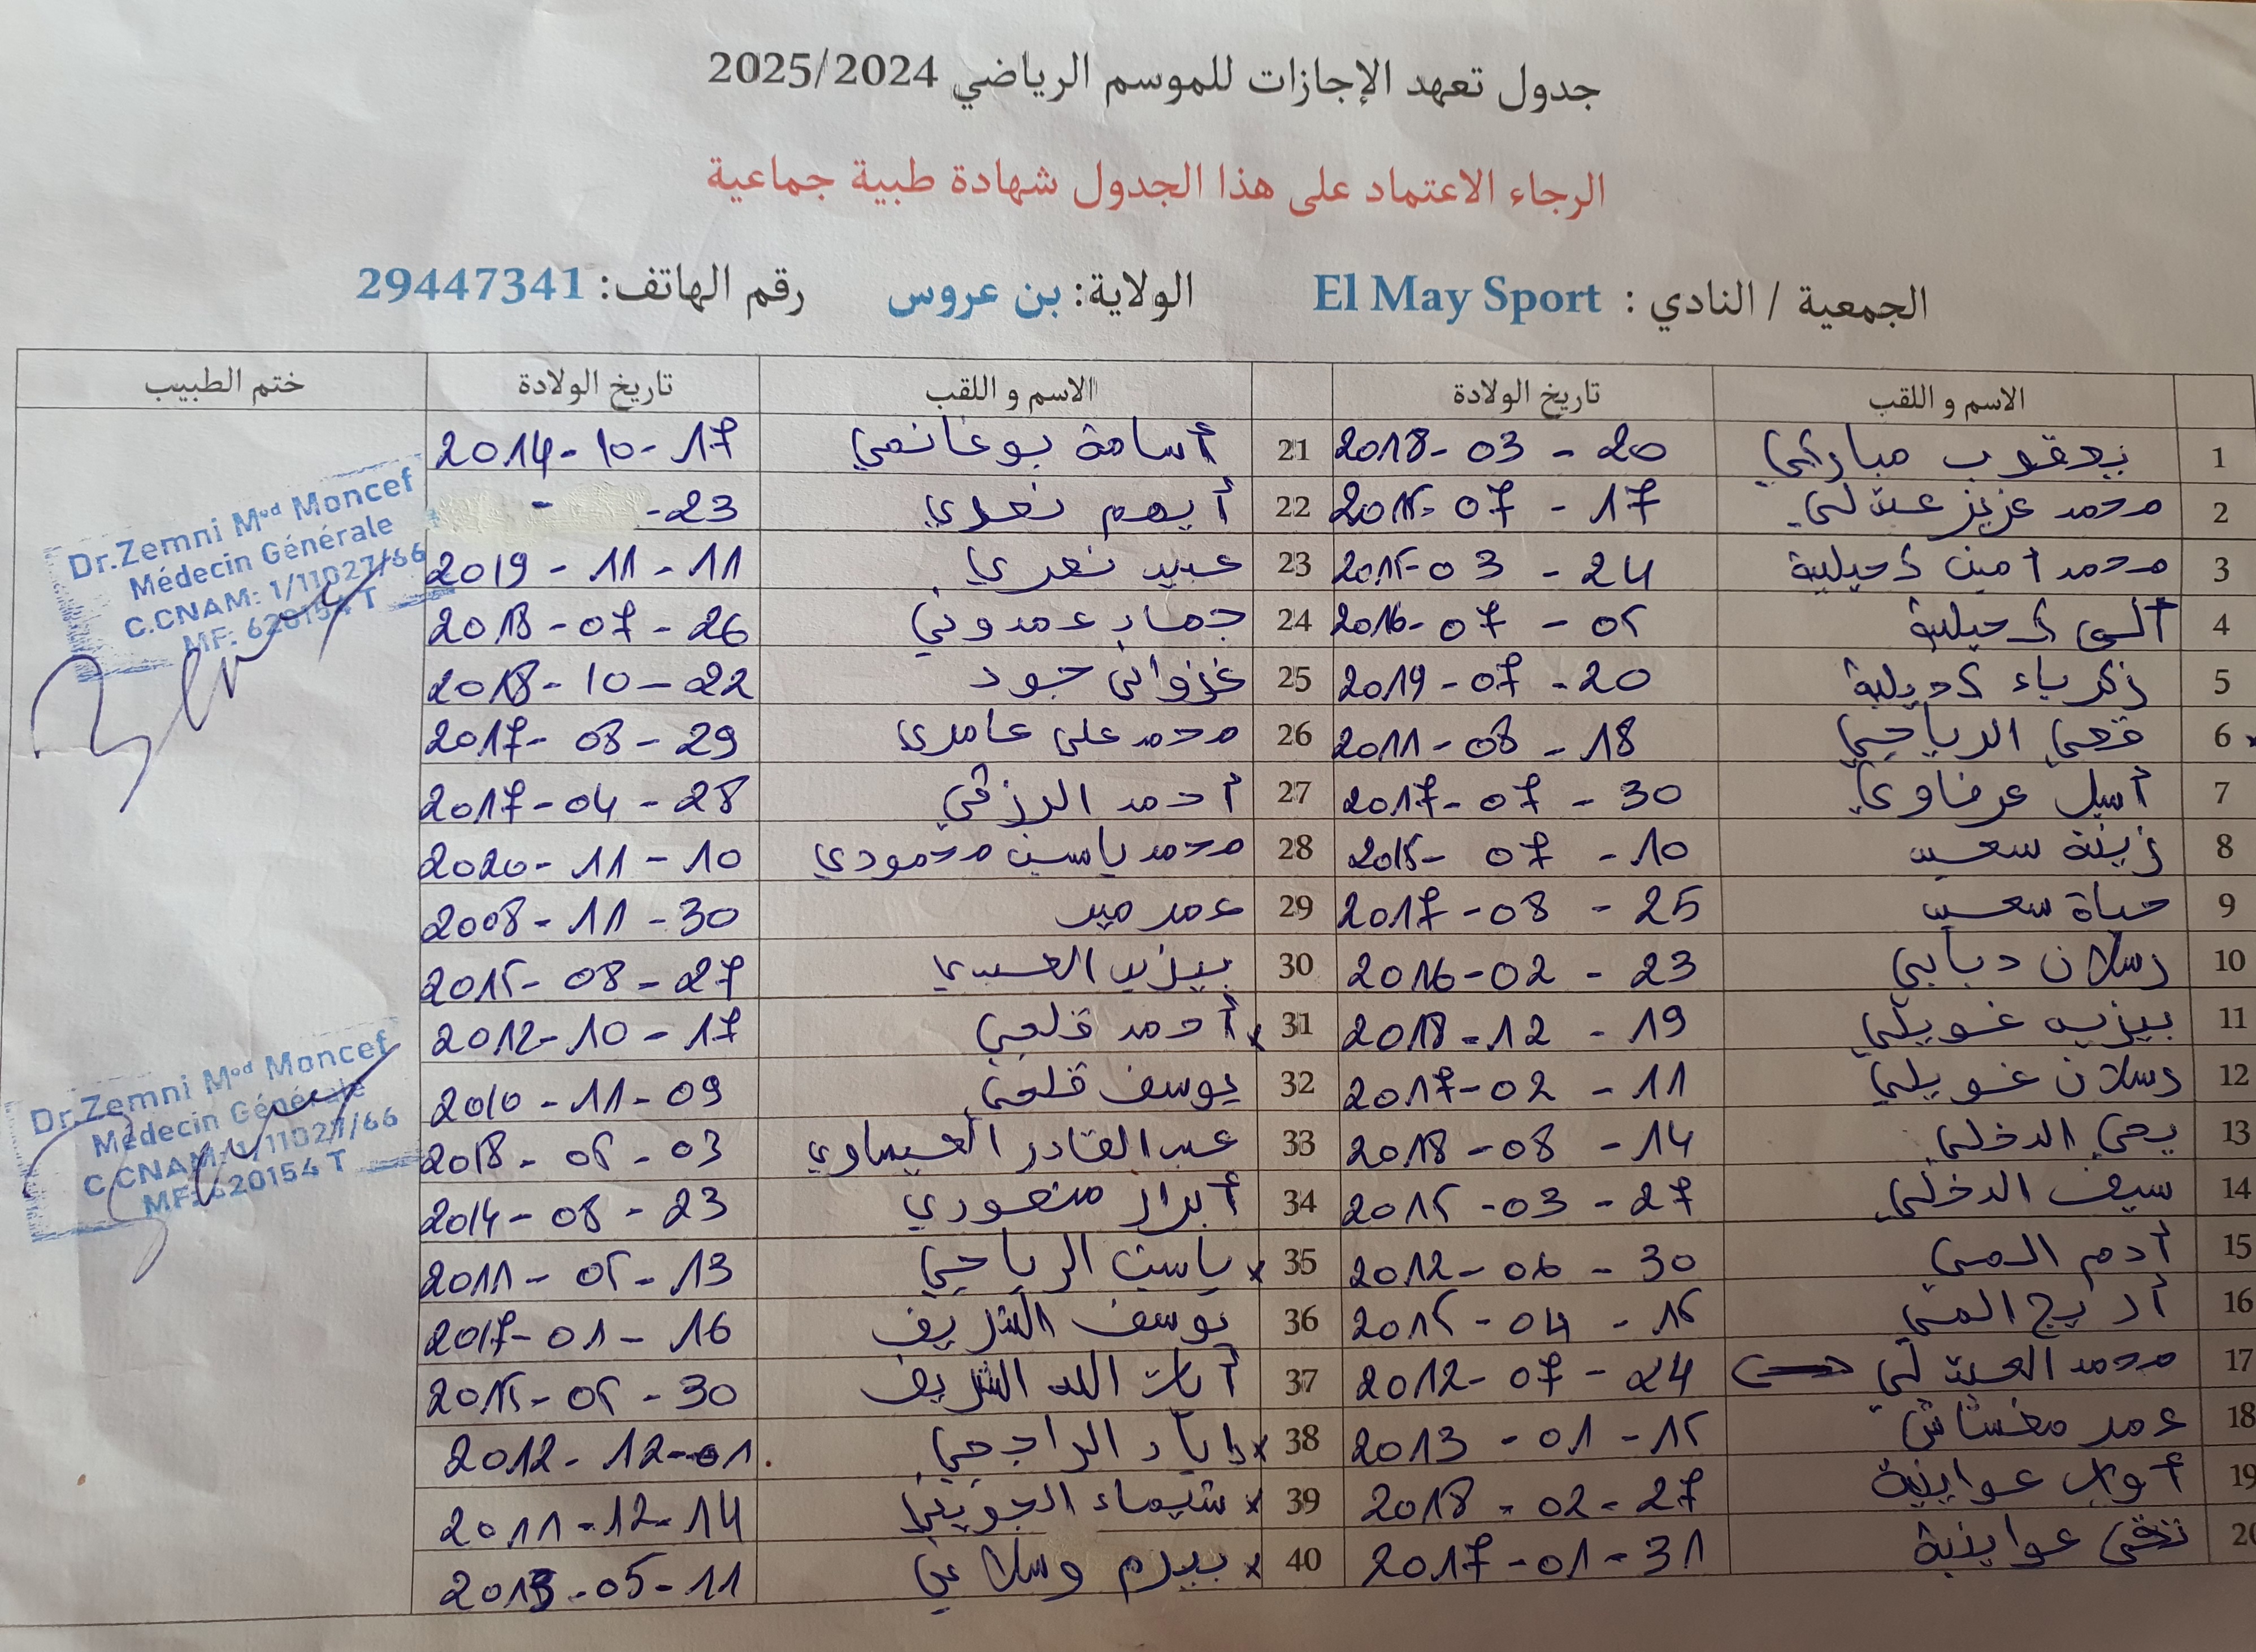 جدول تعهد الإجازات للموسم الرياضي 2025/2024
الرجاء الاعتماد على هذا الجدول شهادة طبية جماعية
الجمعية / النادي : El May Sport الولاية: بن عروس رقم الهاتف: 29447341
الاسم و اللقب تاريخ الولادة الاسم و اللقب تاريخ الولادة ختم الطبيب
1 يعقوب مباركي 2018-03-20 21 أسامة بوغانمي 2014-10-17
2 محمد عزيز عبدلي 2015-07-17 22 أيهم نصري -23
3 محمد أمين كحيلية 2015-03-24 23 عبيد نصري 2019-11-11
4 كحيلية 2016-07-05 24 جهاد عمدوني 2018-07-26
5 زكرياء كحيلية 2019-07-20 25 غزواني جود 2018-10-22
6 قصي الرياحي 2011-08-18 26 محمد علي عامري 2017-08-29
7 أسيل عرفاوي 2017-07-30 27 أحمد الرزقي 2017-04-28
8 زينة سعيد 2015-07-10 28 محمد ياسين محمودي 2020-11-10
9 حياة سعيد 2017-08-25 29 عمر 2008-11-30
10 رسلان دبابي 2016-02-23 30 بيزيد العبيدي 2015-08-27
11 بيزيد غويلي 2018-12-19 31 x أحمد قلعي 2012-10-17
12 رسلان غويلي 2017-02-11 32 يوسف قلعي 2010-11-09
13 يحي الدخلي 2018-08-14 33 عبد القادر العيساوي 2018-05-03
14 سيف الدخلي 2015-03-27 34 أبرار منصوري 2014-08-23
15 أدم 2012-06-30 35 x ياسين الرياحي 2011-05-13
16 أريج 2015-04-15 36 يوسف الشريف 2017-01-16
17 محمد العبدلي 2012-07-24 37 أيات الله الشريف 2015-05-30
18 عمر مغشاش 2013-01-15 38 x إياد الراجحي 2012-12-01
19 أواب عواينية 2018-02-27 39 x شيماء الجويني 2011-12-14
20 تقى عواينية 2017-01-31 40 x بيرم وسلاتي 2013-05-11
Dr.Zemni Mᵒᵈ Moncef
Médecin Générale
C.CNAM: 1/11027/66
MF: 620154 T
Dr.Zemni Mᵒᵈ Moncef
Médecin Générale
C.CNAM: 1/11027/66
MF: 620154 T